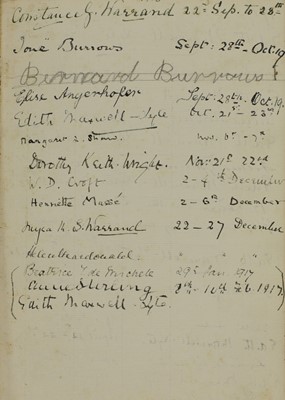 Constance G. Warrand 22nd Sep. to 28th
Joné Burrows Sept: 28th - Oct. 19
Bernard Burrows
Elise Angerhofer Sept: 28th - Oct. 19.
Edith Maxwell-Lyte Oct. 21st - 23rd
Margaret L. Shaw. Nov. 5th - 7th
Dorothy Keith-Wright. Nov: 21st 22nd
W. D. Croft 2 - 4th December
Henriette Massé 2 - 6th December
K. S. Warrand 22 - 27 December
Helen Macdonald. " " "
Beatrice de Michele 29th Jan. 1917
8th - 10th Feb. 1917
Edith Maxwell-Lyte.